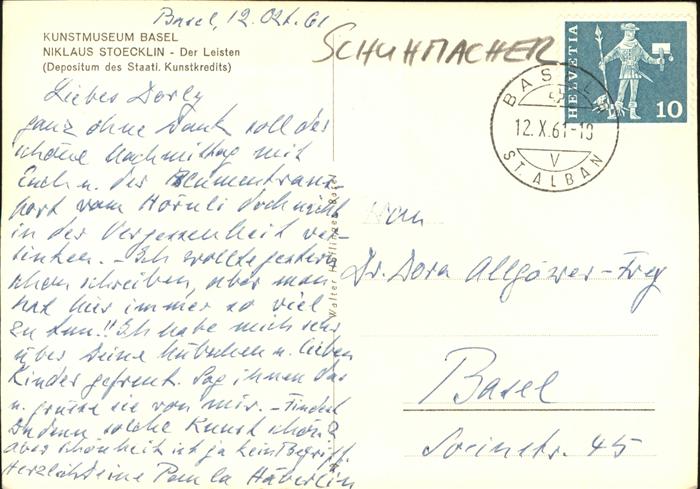 Basel, 12. Okt. 61
KUNSTMUSEUM BASEL
NIKLAUS STOECKLIN - Der Leisten
(Depositum des Staatl. Kunstkredits)
SCHUHMACHER
HELVETIA
10
BASEL
12.X.61-18
V
ST. ALBAN
Liebes Dorly
ganz ohne Dank soll der
schöne Nachmittag mit
Euch u. der Blumentrans-
port vom Hörnli doch nicht
in der Vergessenheit ver-
sinken. - Ich wollte gestern
schon schreiben, aber man
hat hier immer so viel
zu tun!! Ich habe mich sehr
über Deine hübschen u. lieben
Kinder gefreut. Sag ihnen das
u. grüsse sie von mir. - Findest
Du denn solche Kunst schön?
aber Schönheit ist ja kein Begriff.
Herzlich Deine Paula Häberlin
Walter Höflinger, Basel
Frau
Dr. Dora Allgöwer-Frey
Basel
Socinstr. 45